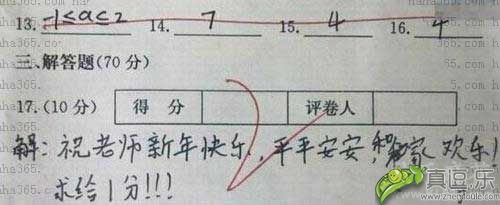 13. -1≤a≤2 14. 7 15. 4 16. 4
三、解答题(70 分)
17. (10 分) 得 分 评卷人
解: 祝老师新年快乐, 平平安安, 家欢乐!
求给1分!!!
真逗乐
www.zhendoule.com